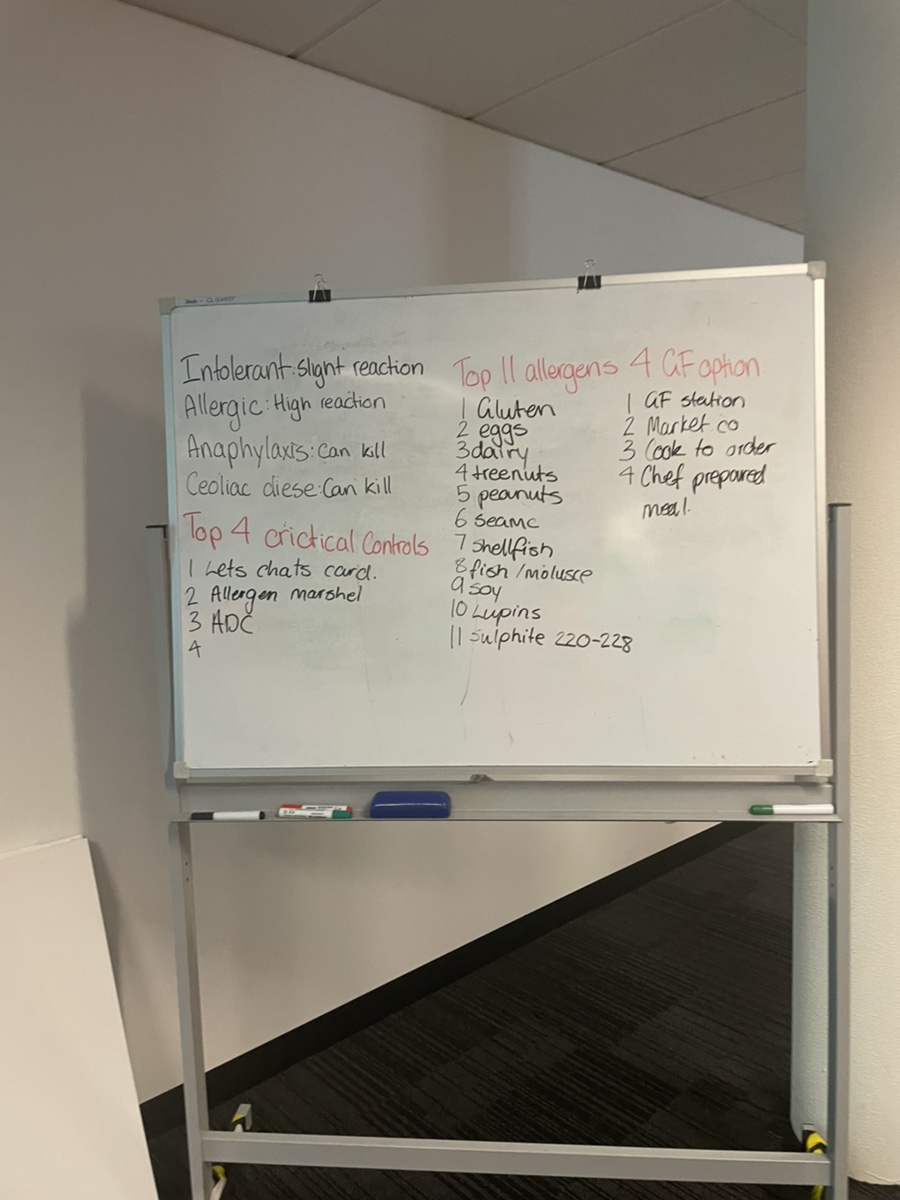 Intolerant: slight reaction
Allergic: High reaction
Anaphylaxis: Can kill
Ceoliac diese: Can kill
Top 4 crictical Controls
1 Lets chats card.
2 Allergen marshel
3 ADC
4
Top 11 allergens
1 Gluten
2 eggs
3 dairy
4 treenuts
5 peanuts
6 seame
7 shellfish
8 fish / molusce
9 soy
10 Lupins
11 Sulphite 220-228
4 GF option
1 GF station
2 Market co
3 Cook to order
4 Chef prepared
meal.